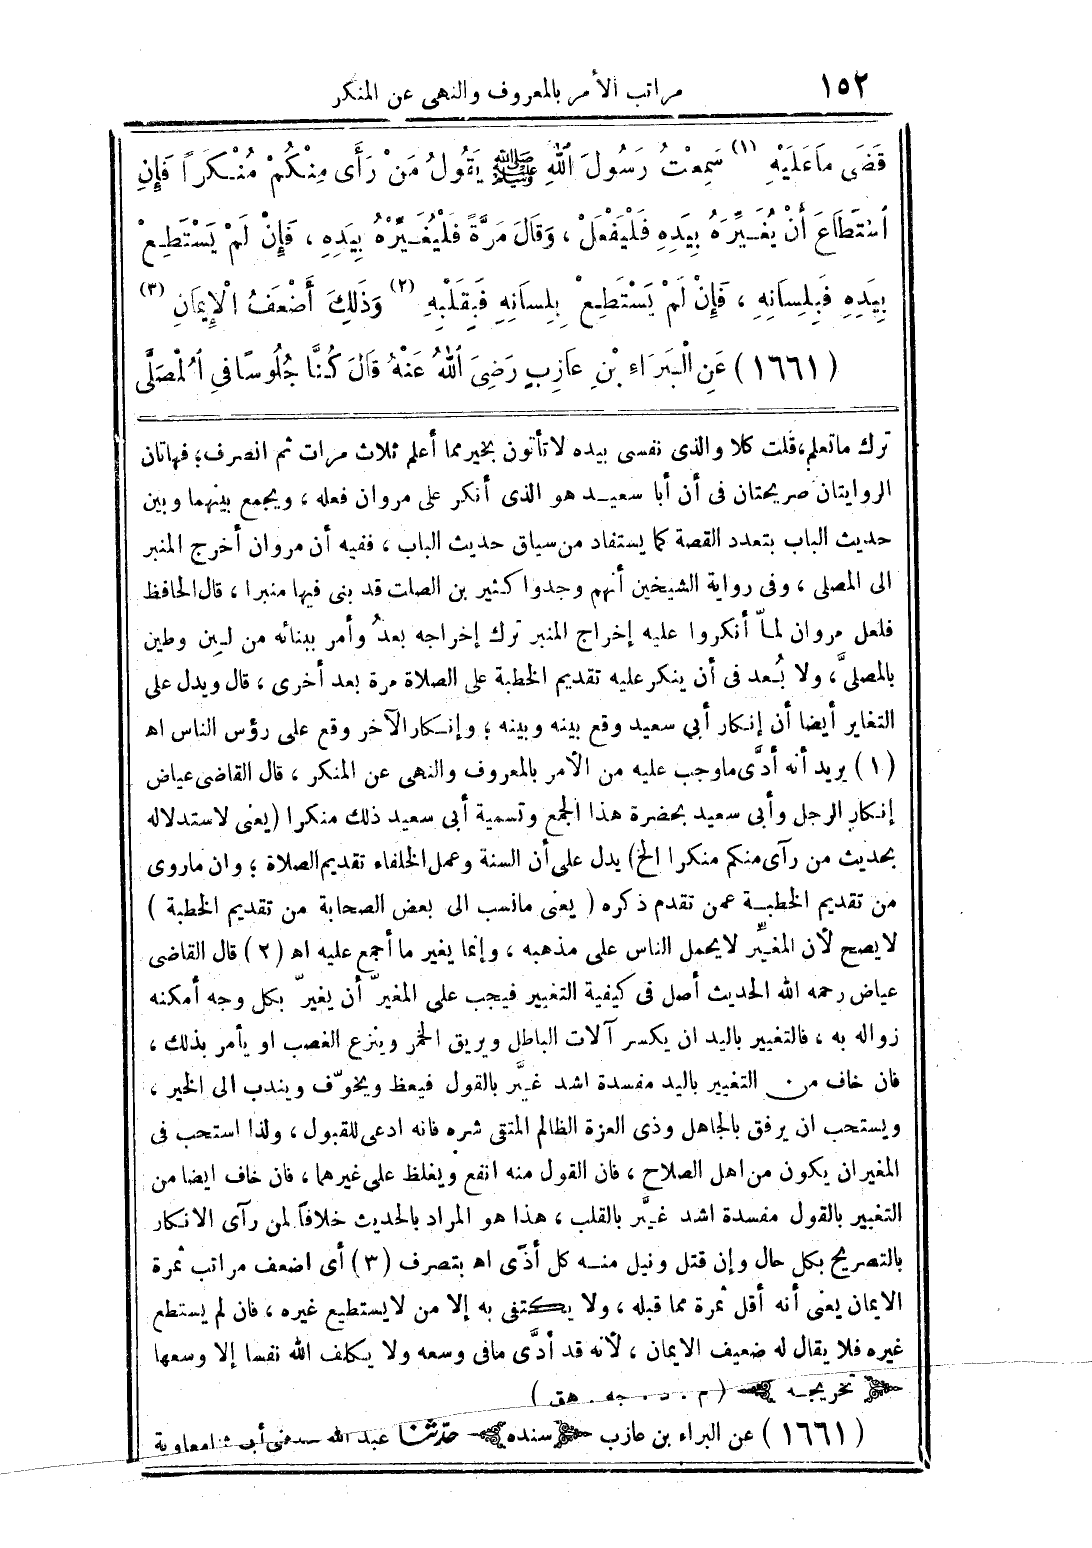 ١٥٢ مراتب الأمر بالمعروف والنهى عن المنكر
قَضَى مَا عَلَيْهِ (١) سَمِعْتُ رَسُولَ اللهِ ﷺ يَقُولُ مَنْ رَأَى مِنْكُمْ مُنْكَرَاً فَإِنِ
اسْتَطَاعَ أَنْ يُغَيِّرَهُ بِيَدِهِ فَلْيَفْعَلْ ، وَقَالَ مَرَّةً فَلْيُغَيِّرْهُ بِيَدِهِ ، فَإِنْ لَمْ يَسْتَطِعْ
بِيَدِهِ فَبِلِسَانِهِ ، فَإِنْ لَمْ يَسْتَطِعْ بِلِسَانِهِ فَبِقَلْبِهِ (٢) وَذَلِكَ أَضْعَفُ الْإِيمَانِ (٣)
(١٦٦١) عَنِ الْبَرَاءِ بْنِ عَازِبٍ رَضِىَ اللهُ عَنْهُ قَالَ كُنَّا جُلُوسًا فِى الْمُصَلَّى
ترك ماتعلم، قلت كلا والذى نفسى بيده لا تأتون بخير مما أعلم ثلاث مرات ثم انصرف؛ فهاتان
الروايتان صريحتان فى أن أبا سعيد هو الذى أنكر على مروان فعله ، ويجمع بينهما وبين
حديث الباب بتعدد القصة كما يستفاد من سياق حديث الباب ، ففيه أن مروان أخرج المنبر
الى المصلى ، وفى رواية الشيخين أنهم وجدوا كثير بن الصلت قد بنى فيها منبرا ، قال الحافظ
فلعل مروان لمـّا أنكروا عليه إخراج المنبر ترك إخراجه بعدُ وأمر ببنائه من لبن وطين
بالمصلىَّ ، ولا بُعد فى أن ينكر عليه تقديم الخطبة على الصلاة مرة بعد أخرى ، قال ويدل على
التغاير أيضا أن إنكار أبي سعيد وقع بينه وبينه ؛ وإنكار الآخر وقع على رؤس الناس اه
(١) يريد أنه أدَّى ماوجب عليه من الأمر بالمعروف والنهى عن المنكر ، قال القاضى عياض
إنكار الرجل وأبى سعيد بحضرة هذا الجمع وتسمية أبى سعيد ذلك منكرا (يعنى لاستدلاله
بحديث من رآى منكم منكرا الخ) يدل على أن السنة وعمل الخلفاء تقديم الصلاة ؛ وان ماروى
من تقديم الخطبة عمن تقدم ذكره ( يعنى مانسب الى بعض الصحابة من تقديم الخطبة )
لا يصح لأن المغيِّر لايحمل الناس على مذهبه ، وإنما يغير ما أجمع عليه اه (٢) قال القاضى
عياض رحمه الله الحديث أصل فى كيفية التغيير فيجب على المغيرّ أن يغيرّ بكل وجه أمكنه
زواله به ، فالتغيير باليد ان يكسر آلات الباطل ويريق الخمر وينزع الغصب او يأمر بذلك ،
فان خاف من التغيير باليد مفسدة اشد غيَّر بالقول فيعظ ويخوّف ويندب الى الخير ،
ويستحب ان يرفق بالجاهل وذى العزة الظالم المتقى شره فانه ادعى للقبول ، ولذا استحب فى
المغير ان يكون من اهل الصلاح ، فان القول منه انفع ويغلظ على غيرهما ، فان خاف ايضا من
التغيير بالقول مفسدة اشد غيَّر بالقلب ، هذا هو المراد بالحديث خلافاً لمن رآى الانكار
بالتصريح بكل حال وإن قتل ونيل منه كل أذًى اه بتصرف (٣) أى اضعف مراتب ثمرة
الايمان يعنى أنه أقل ثمرة مما قبله ، ولا يكتفى به إلا من لايستطيع غيره ، فان لم يستطع
غيره فلا يقال له ضعيف الايمان ، لأنه قد أدَّى مافى وسعه ولا يكلف الله نفسا إلا وسعها
تخريجه ( م . د . جه . هق )
(١٦٦١) عن البراء بن عازب سنده حدّثنا عبد الله حدثنى أبى ثنا معاوية